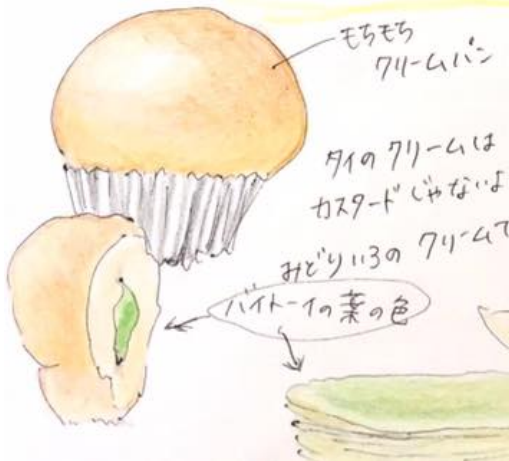 もちもち
クリームパン
タイのクリームは
カスタードじゃないよ
みどりいろの クリームで
バイトーイの葉の色